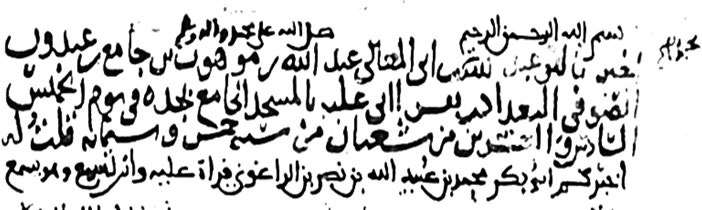 بسم الله الرحمن الرحيم صلى الله على محمد واله وسلم
ابى المعالى عبد الله بن موهوب بن جامع بن عبدون
الصوفى البغدادى بقراءتى عليه بالمسجد الجامع بجدة فى يوم الخميس
السادس والعشرين من شعبان من سنة خمس وستمائة قلت له
اخبركم ابو بكر محمد بن عبيد الله بن نصر بن الزاغونى قراة عليه وانت تسمع وهو يسمع